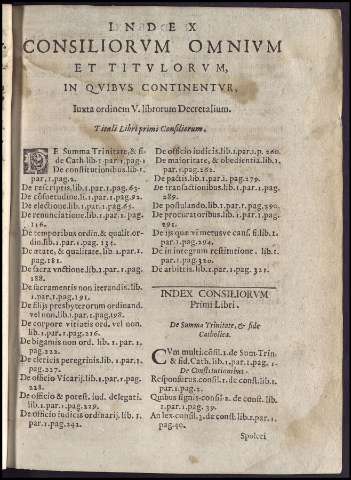 INDEX
CONSILIORVM OMNIVM
ET TITVLORVM,
IN QVIBVS CONTINENTVR,
Iuxta ordinem V. librorum Decretalium.
Tituli Libri primi Consiliorum.
DE Summa Trinitate, & fi-
de Cath.lib.1.par.1.pag.1
De constitutionibus.lib.1.
par.1.pag.2.
De rescriptis.lib.1.par.1.pag.63.
De cõsuetudine.li.1.par.1.pag.92.
De electione.lib.1.par.1.pag.65.
De renunciatione.lib.1.par.1.pag.
116.
De temporibus ordin.& qualit.or-
din.lib.1.par.1.pag. 135.
De ætate, & qualitate. lib.1.par.1.
pag.181.
De sacra vnctione.lib.1.par.1.pag.
188.
De sacramentis non iterandis.lib.
1.par.1.pag.191.
De filijs presbyterorum ordinand.
vel non.lib.1.par.1.pag.198.
De corpore vitiatis ord. vel non.
lib.1.par.1.pag.216.
De bigamis non ord. lib.1. par.1.
pag.222.
De clericis peregrinis.lib.1.par.1.
pag.227.
De officio Vicarij.lib.1.par.1.pag.
228.
De officio & potest. iud. delegati.
lib.1.par.1.pag.229.
De officio iudicis ordinarij.lib.1.
par.1.pag.242.
De officio iudicis.lib.1.par.1.p. 260.
De maioritate, & obedientia.lib.1.
par.1.pag.262.
De pactis.lib.1.par.1.pag.279.
De transactionibus.lib.1.par.1.pag.
289.
De postulando.lib.1.par.1.pag.290.
De procuratoribus.lib.1.par.1.pag.
291.
De ijs quæ vi metusve caus.fi.lib.1.
par.1.pag.294.
De in integrum restitutione. lib.1.
par.1.pag.320.
De arbitris.lib.1.par.1.pag. 321.
INDEX CONSILIORVM
Primi Libri.
De Summa Trinitate, & fide
Catholica.
CVm multi.cõsil.1.de Sum.Trin.
& fid.Cath.lib.1.par.1.pag.1.
De Constitutionibus.
Responsurus.consil.1.de const.lib.1.
par.1.pag.2.
Quibus signis.consil.2.de const. lib.
1.par.1.pag.39.
An lex.consil.3.de const.lib.1.par.1.
pag.40.